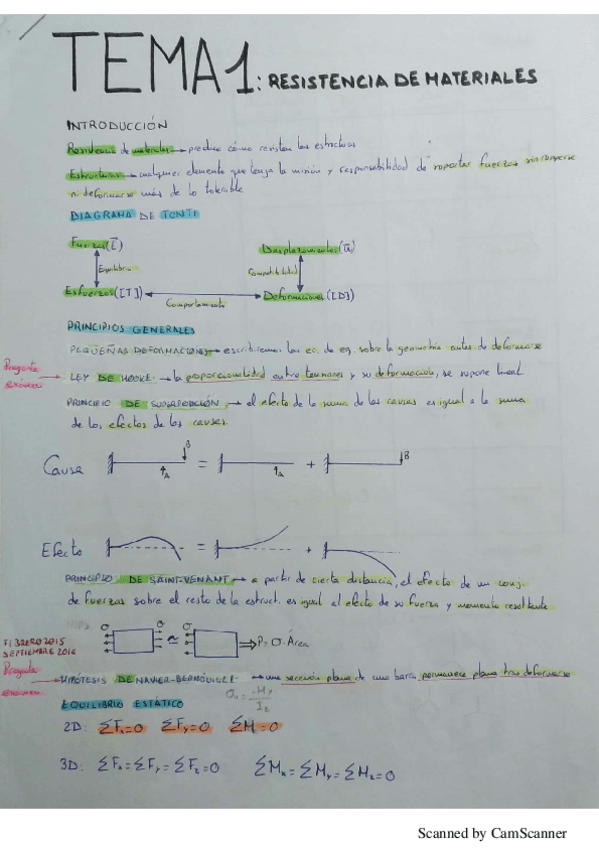 TEMA 1: RESISTENCIA DE MATERIALES
INTRODUCCIÓN
Resistencia de materiales → predice cómo resisten las estructuras
Estructuras → cualquier elemento que tenga la misión y responsabilidad de soportar fuerzas sin romperse
ni deformarse más de lo tolerable
DIAGRAMA DE TONTI
Fuerzas (f) Desplazamientos (u)
Equilibrio Compatibilidad
Esfuerzos ([T]) Deformaciones ([D])
Comportamiento
PRINCIPIOS GENERALES
PEQUEÑAS DEFORMACIONES → escribiremos las ec. de eq. sobre la geometría antes de deformarse
Pregunta
examen
LEY DE HOOKE → la proporcionalidad entre tensiones y su deformación, se supone lineal
PRINCIPIO DE SUPERPOSICIÓN → el efecto de la suma de las causas es igual a la suma
de los efectos de las causas.
Causa A B = A + B
Efecto = +
PRINCIPIO DE SAINT-VENANT → a partir de cierta distancia, el efecto de un conj.
de fuerzas sobre el resto de la estruct. es igual al efecto de su fuerza y momento resultante
FEBRERO 2015
SEPTIEMBRE 2016
σ σ ≃ σ ⇒ P = σ·Área
Pregunta
examen
HIPÓTESIS DE NAVIER-BERNOUILLI → una sección plana de una barra permanece plana tras deformarse
EQUILIBRIO ESTÁTICO
2D: ΣFx=0 ΣFy=0 ΣM=0
3D: ΣFx=ΣFy=ΣFz=0 ΣMx=ΣMy=ΣMz=0
Scanned by CamScanner